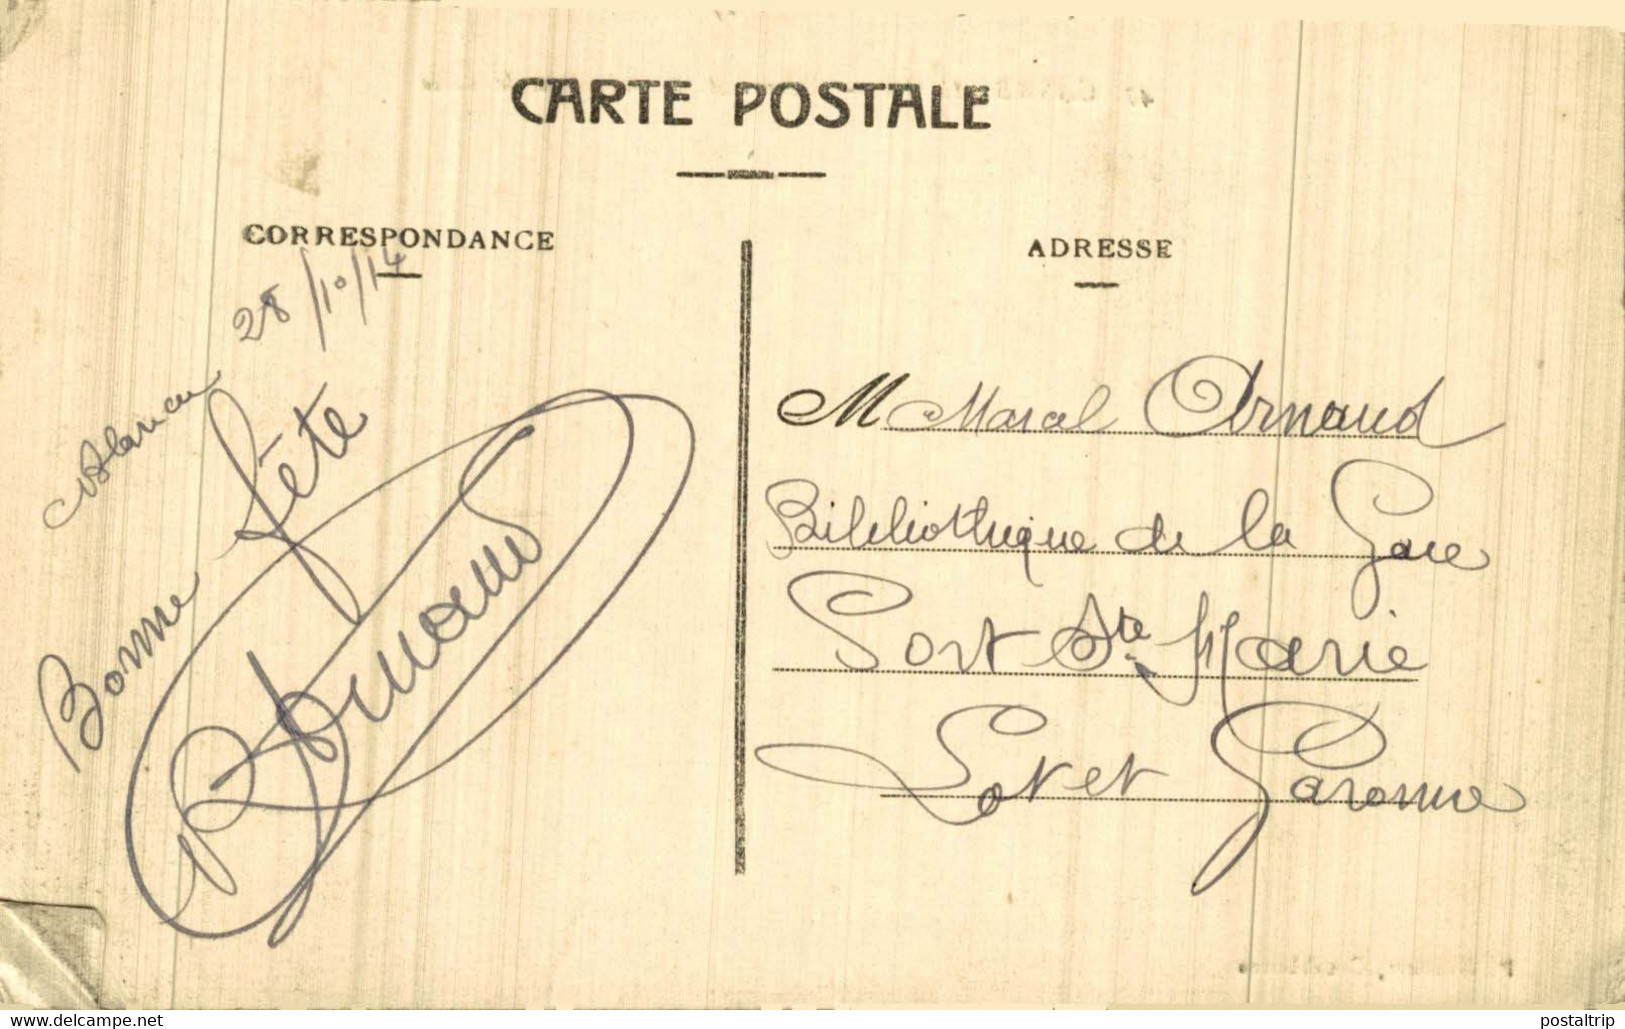 CARTE POSTALE
CORRESPONDANCE
28/10/14
Bonne fête
ADRESSE
M Marcal Arnaud
Bibliothèque de la Gare
Port Ste Marie
Lot et Garonne
www.delcampe.net
postaltrip